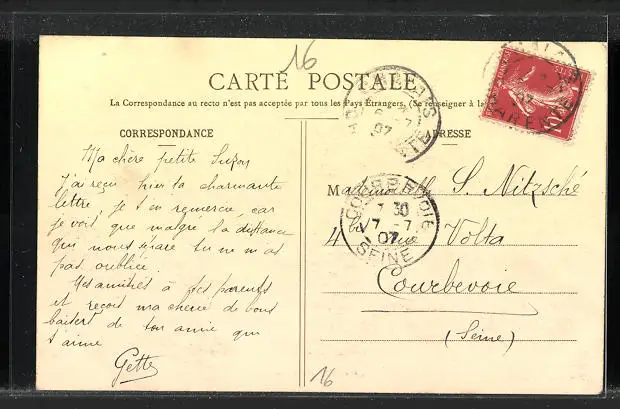 16
CARTE POSTALE
La Correspondance au recto n'est pas acceptée par tous les Pays Étrangers. (Se renseigner à la
CORRESPONDANCE
ADRESSE
Ma chère petite Suzon
J'ai reçu hier ta charmante
lettre, je t'en remercie, car
je vois que malgré la distance
qui nous sépare tu ne m'as
pas oubliée.
Mes amitiés à tes parents
et reçois ma chérie de bons
baisers de ton amie qui
t'aime
Gette
Mademoiselle S. Nitzsché
4 bis rue Volta
Courbevoie
(Seine)
COURBEVOIE
7 30
7 - 7
07
SEINE
10
16